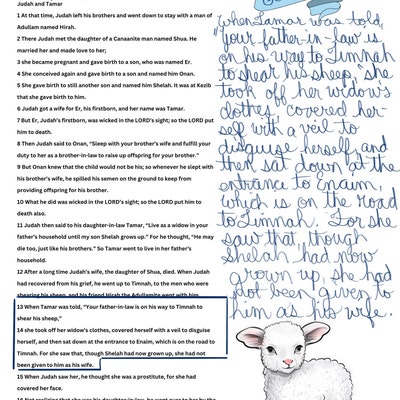 Judah and Tamar
1 At that time, Judah left his brothers and went down to stay with a man of
Adullam named Hirah.
2 There Judah met the daughter of a Canaanite man named Shua. He
married her and made love to her;
3 she became pregnant and gave birth to a son, who was named Er.
4 She conceived again and gave birth to a son and named him Onan.
5 She gave birth to still another son and named him Shelah. It was at Kezib
that she gave birth to him.
6 Judah got a wife for Er, his firstborn, and her name was Tamar.
7 But Er, Judah's firstborn, was wicked in the LORD's sight; so the LORD put
him to death.
8 Then Judah said to Onan, "Sleep with your brother's wife and fulfill your
duty to her as a brother-in-law to raise up offspring for your brother."
9 But Onan knew that the child would not be his; so whenever he slept with
his brother's wife, he spilled his semen on the ground to keep from
providing offspring for his brother.
10 What he did was wicked in the LORD's sight; so the LORD put him to
death also.
11 Judah then said to his daughter-in-law Tamar, "Live as a widow in your
father's household until my son Shelah grows up." For he thought, "He may
die too, just like his brothers." So Tamar went to live in her father's
household.
12 After a long time Judah's wife, the daughter of Shua, died. When Judah
had recovered from his grief, he went up to Timnah, to the men who were
shearing his sheep, and his friend Hirah the Adullamite went with him.
13 When Tamar was told, "Your father-in-law is on his way to Timnah to
shear his sheep,"
14 she took off her widow's clothes, covered herself with a veil to disguise
herself, and then sat down at the entrance to Enaim, which is on the road to
Timnah. For she saw that, though Shelah had now grown up, she had not
been given to him as his wife.
15 When Judah saw her, he thought she was a prostitute, for she had
covered her face.
16 Not realizing that she was his daughter-in-law, he went over to her by the
When Tamar was told,
"your father-in-law is
on his way to Timnah
to shear his sheep," she
took off her widow's
clothes, covered her-
self with a veil to
disguise herself, and
then sat down at the
entrance to Enaim,
which is on the road
to Timnah. For she
saw that, though
Shelah had now
grown up, she had
not been given to
him as his wife.